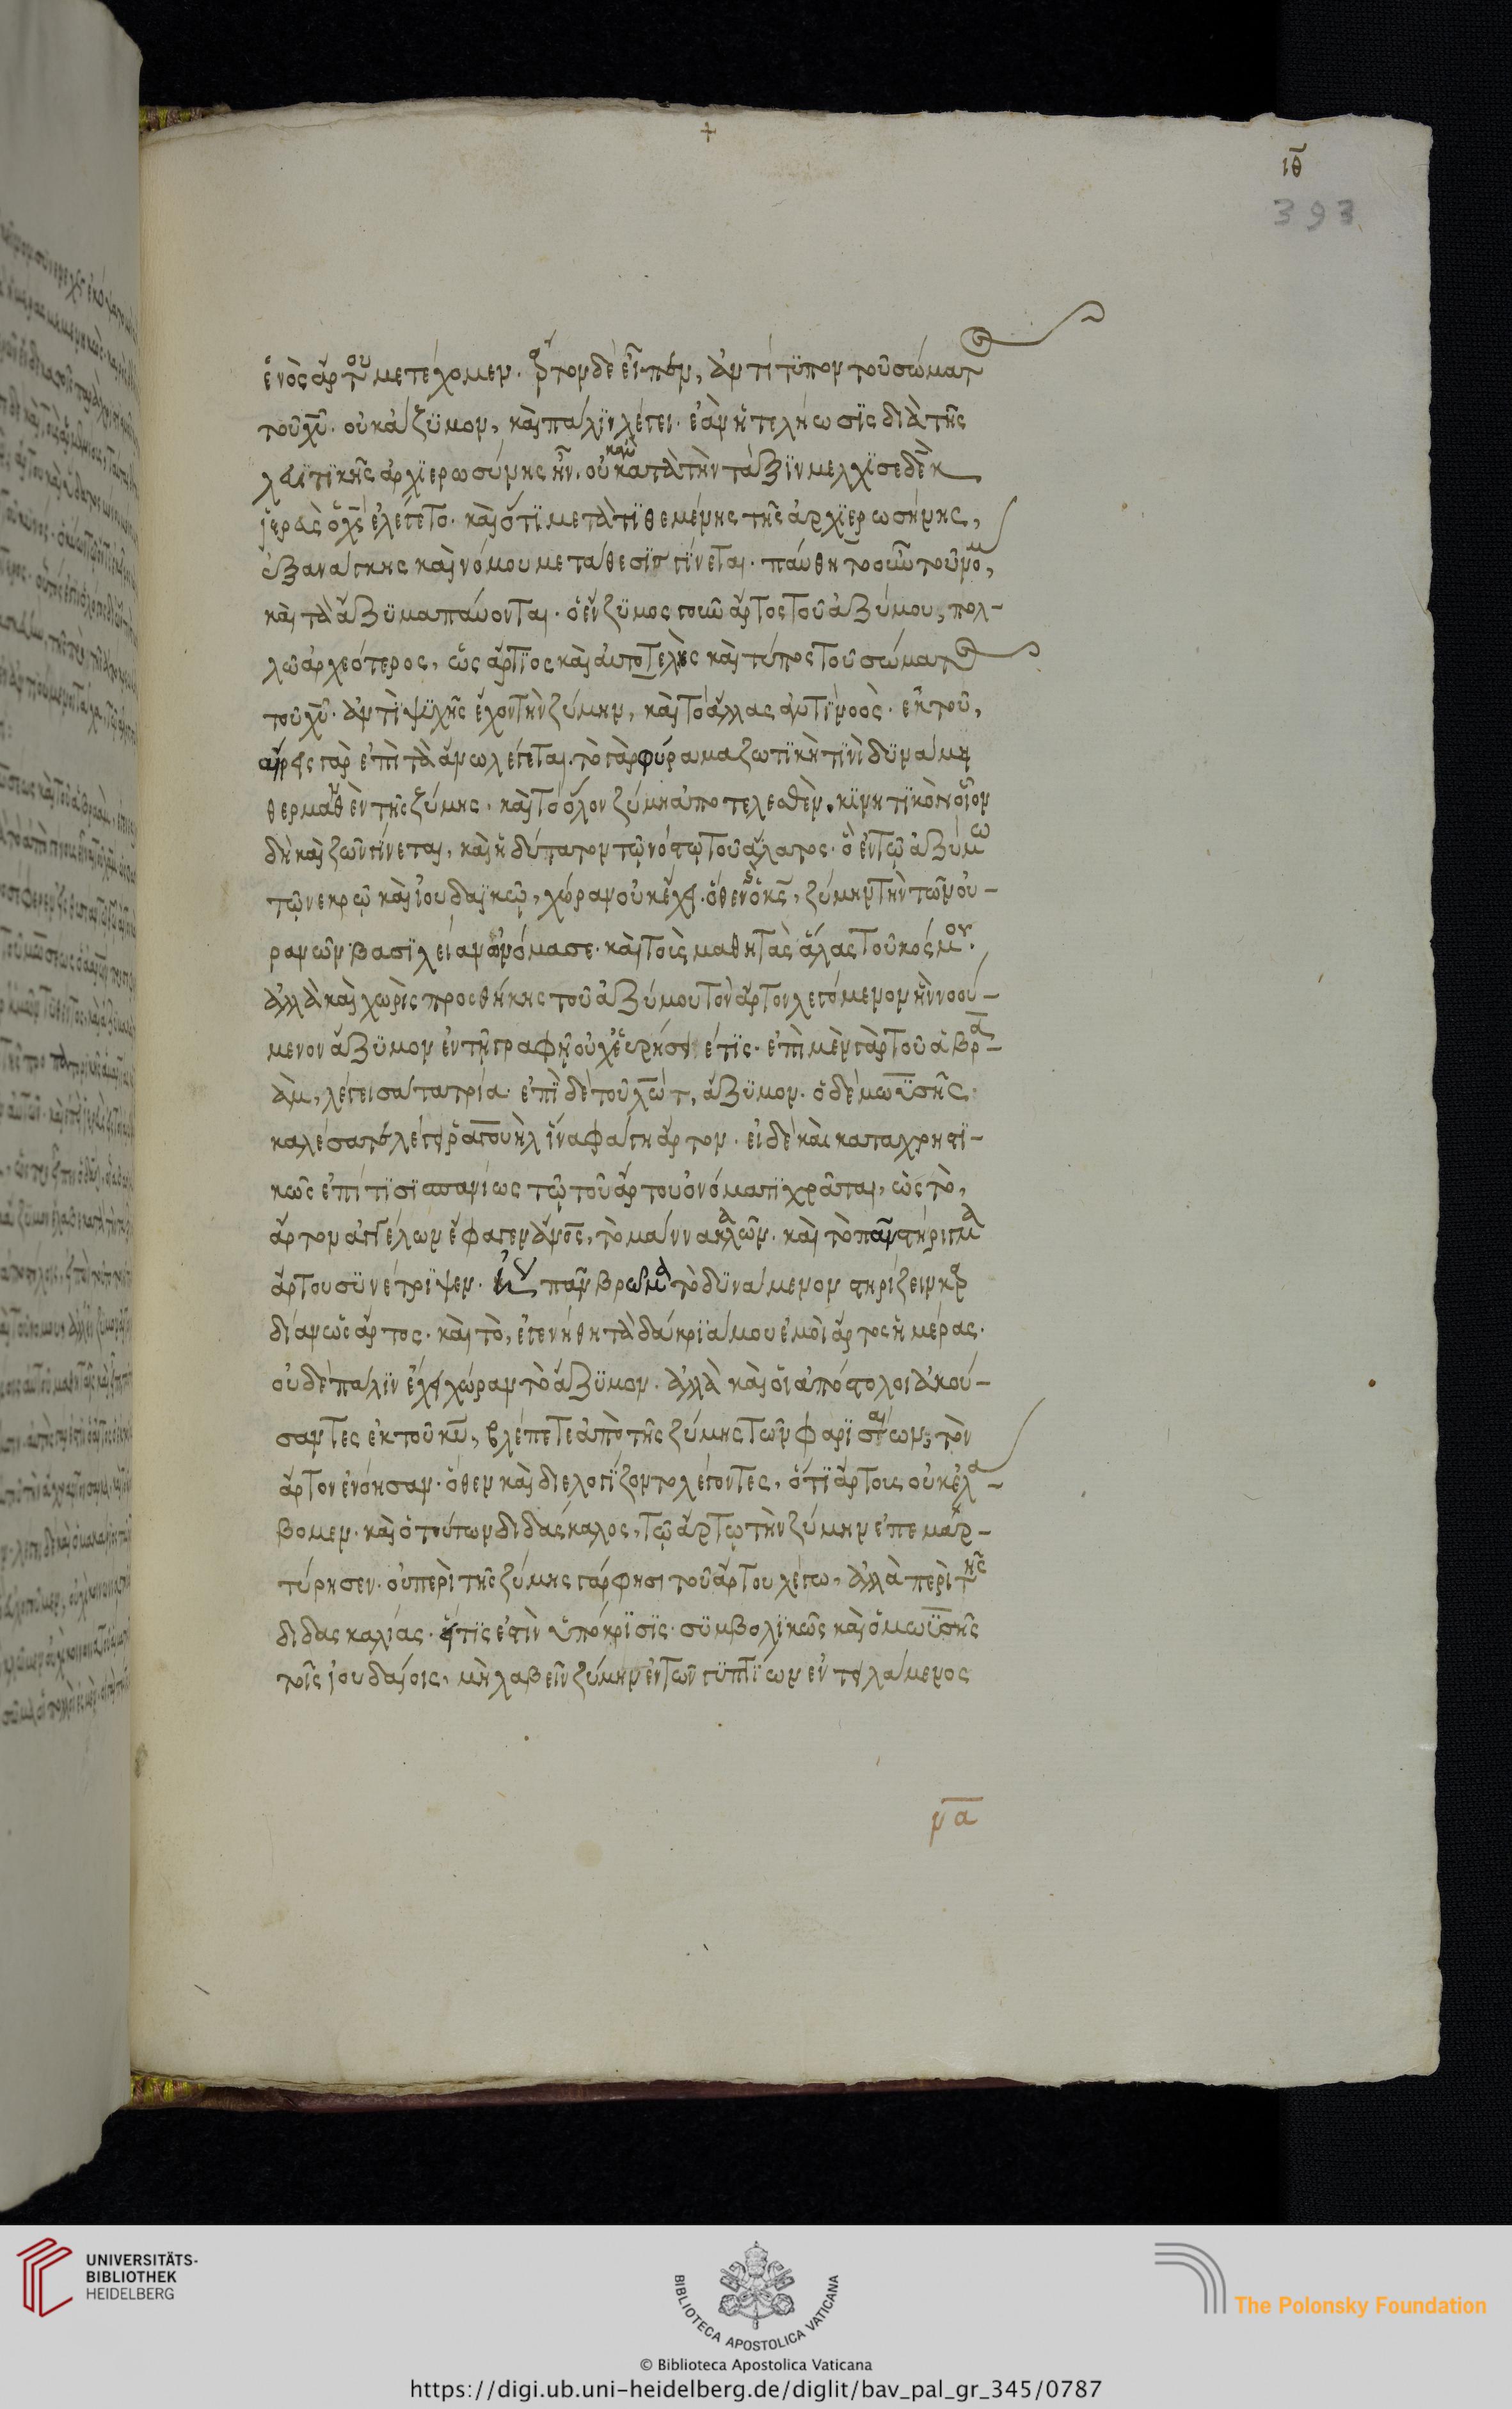 ιθ
393
ἑνὸς ἄρτου μετέχομεν. ἄρτον δὲ εἰπὼν, ἀντίτϋπον τοῦ σώματος
τοῦ χῦ. οὐκ ἄζϋμον, καὶ πάλϊν λέγει. ἐὰν ἡ τελείωσϊς διὰ τῆς
λευϊτϊκῆς ἀρχϊερωσύνης ἦν. οὐκ ἂν κατὰ τὴν τάξϊν μελχϊσεδὲκ
ἱερεὺς ὁ χς ἐλέγετο. καὶ ὅτϊ μετατϊθεμένης τῆς ἀρχϊερωσύνης,
ἐξ ανάγκης καὶ νόμου μετάθεσϊς γϊνεται. παύθητος οὖν τοῦ νόμου,
καὶ τὰ ἄζϋμα παύονται. ὁ ἔνζϋμος γοῦν ἄρτος τοῦ ἀζύμου, πολ-
λῶ ἀρχεότερος, ὡς ἄρτϊος καὶ αὐτοτελὴς καὶ τύπος τοῦ σώματος
τοῦ χῦ. ἀντϊ ψϋχῆς ἔχον τὴν ζύμην, καὶ τὸ ἅλας ἀντϊ νοὸς. ἐκ τοῦ,
αἴρειν γὰρ ἐπὶ τὰ ἄνω λέγεται. τὸ γὰρ φύραμα ζωτϊκὴ τϊνὶ δϋνάμει
θερμανθὲν τῆς ζύμης. καὶ τὸ ὅλον ζύμη ἀποτελεσθὲν. κϊνητϊκὸν οἷον
δὴ καὶ ζῶν γίνεται, καὶ ἡδύτατον τῷ νόστῳ τοῦ ἅλατος. ὃ ἐν τῷ ἀζύμω
τῷ νεκρῷ καὶ ἰουδαϊκῷ, χώραν οὐκ ἔχει. ὅθεν ὁ κς, ζύμην τὴν τῶν οὐ-
ρανῶν βασϊλείαν ὠνόμασε. καὶ τοὺς μαθητὰς ἅλας τοῦ κόσμου.
ἀλλὰ καὶ χωρὶς προσθήκης τοῦ ἀζύμου τὸν ἄρτον λεγόμενον ἢ νοού-
μενον ἄζϋμον ἐν τῇ γραφῇ οὐχ εὑρήσει τϊς. ἐπὶ μὲν γὰρ τοῦ ἀβρα-
ὰμ, λέγει σάτα τρία. ἐπϊ δὲ τοῦ λὼτ, ἄζϋμον. ὁ δὲ μωϋσῆς
καλέσατο λέγει ῥαγουὴλ ἵνα φάγη ἄρτον. εἰ δὲ καὶ καταχρηστϊ-
κῶς ἐπί τϊσϊ σπανίως τῷ τοῦ ἄρτου ὀνόματϊ χρᾶται, ὡς τὸ,
ἄρτον ἀγγέλων ἔφαγεν ἄνος, τὸ μάννα καλῶν. καὶ τὸ πᾶν στήριγμα
ἄρτου σϋνέτρϊψεν. ἤγουν πᾶν βρῶμα τὸ δϋνάμενον στηρίζειν καρ
δίαν ὡς ἄρτος. καὶ τὸ, ἐγενήθη τὰ δάκρϋά μου ἐμοὶ ἄρτος ἡμέρας.
οὐδὲ πάλϊν ἔχει χώραν τὸ ἄζϋμον. ἀλλὰ καὶ οἱ ἀπόστολοι ἀκού-
σαντες ἐκ τοῦ κῦ, βλέπετε ἀπὸ τῆς ζύμης τῶν φαρϊσαίων, τὸν
ἄρτον ἐνόησαν. ὅθεν καὶ διελογϊζοντο λέγοντες, ὅτϊ ἄρτους οὐκ ἐλά-
βομεν. καὶ ὁ τούτων διδάσκαλος, τῷ ἄρτῳ τὴν ζύμην ἐπεμαρ-
τύρησεν. οὐ περὶ τῆς ζύμης γάρ φησι τοῦ ἄρτου λέγω, ἀλλὰ περὶ τῆς
διδασκαλίας. ἥτϊς ἐστὶν ὑπόκρϊσϊς. σϋμβολϊκῶς καὶ ὁ μωϋσῆς
τοῖς ἰουδαίοις, μὴ λαβεῖν ζύμην ἐκ τῶν αἰγϋπτϊων ἐντειλάμενος
να
UNIVERSITÄTS-
BIBLIOTHEK
HEIDELBERG
BIBLIOTECA APOSTOLICA VATICANA
The Polonsky Foundation
© Biblioteca Apostolica Vaticana
https://digi.ub.uni-heidelberg.de/diglit/bav_pal_gr_345/0787